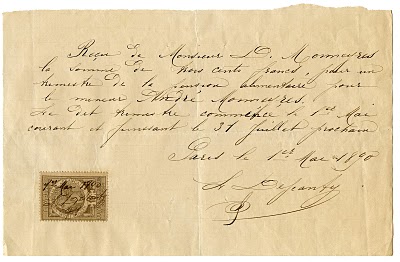 Reçu de Monsieur D. Monneyres
la somme de trois cents francs, pour un
trimestre de la pension alimentaire pour
le mineur André Monneyres.
Le dit trimestre commence le 1er Mai
courant et finissant le 31 juillet prochain
Paris le 1er Mai 1890
1er Mai 1890